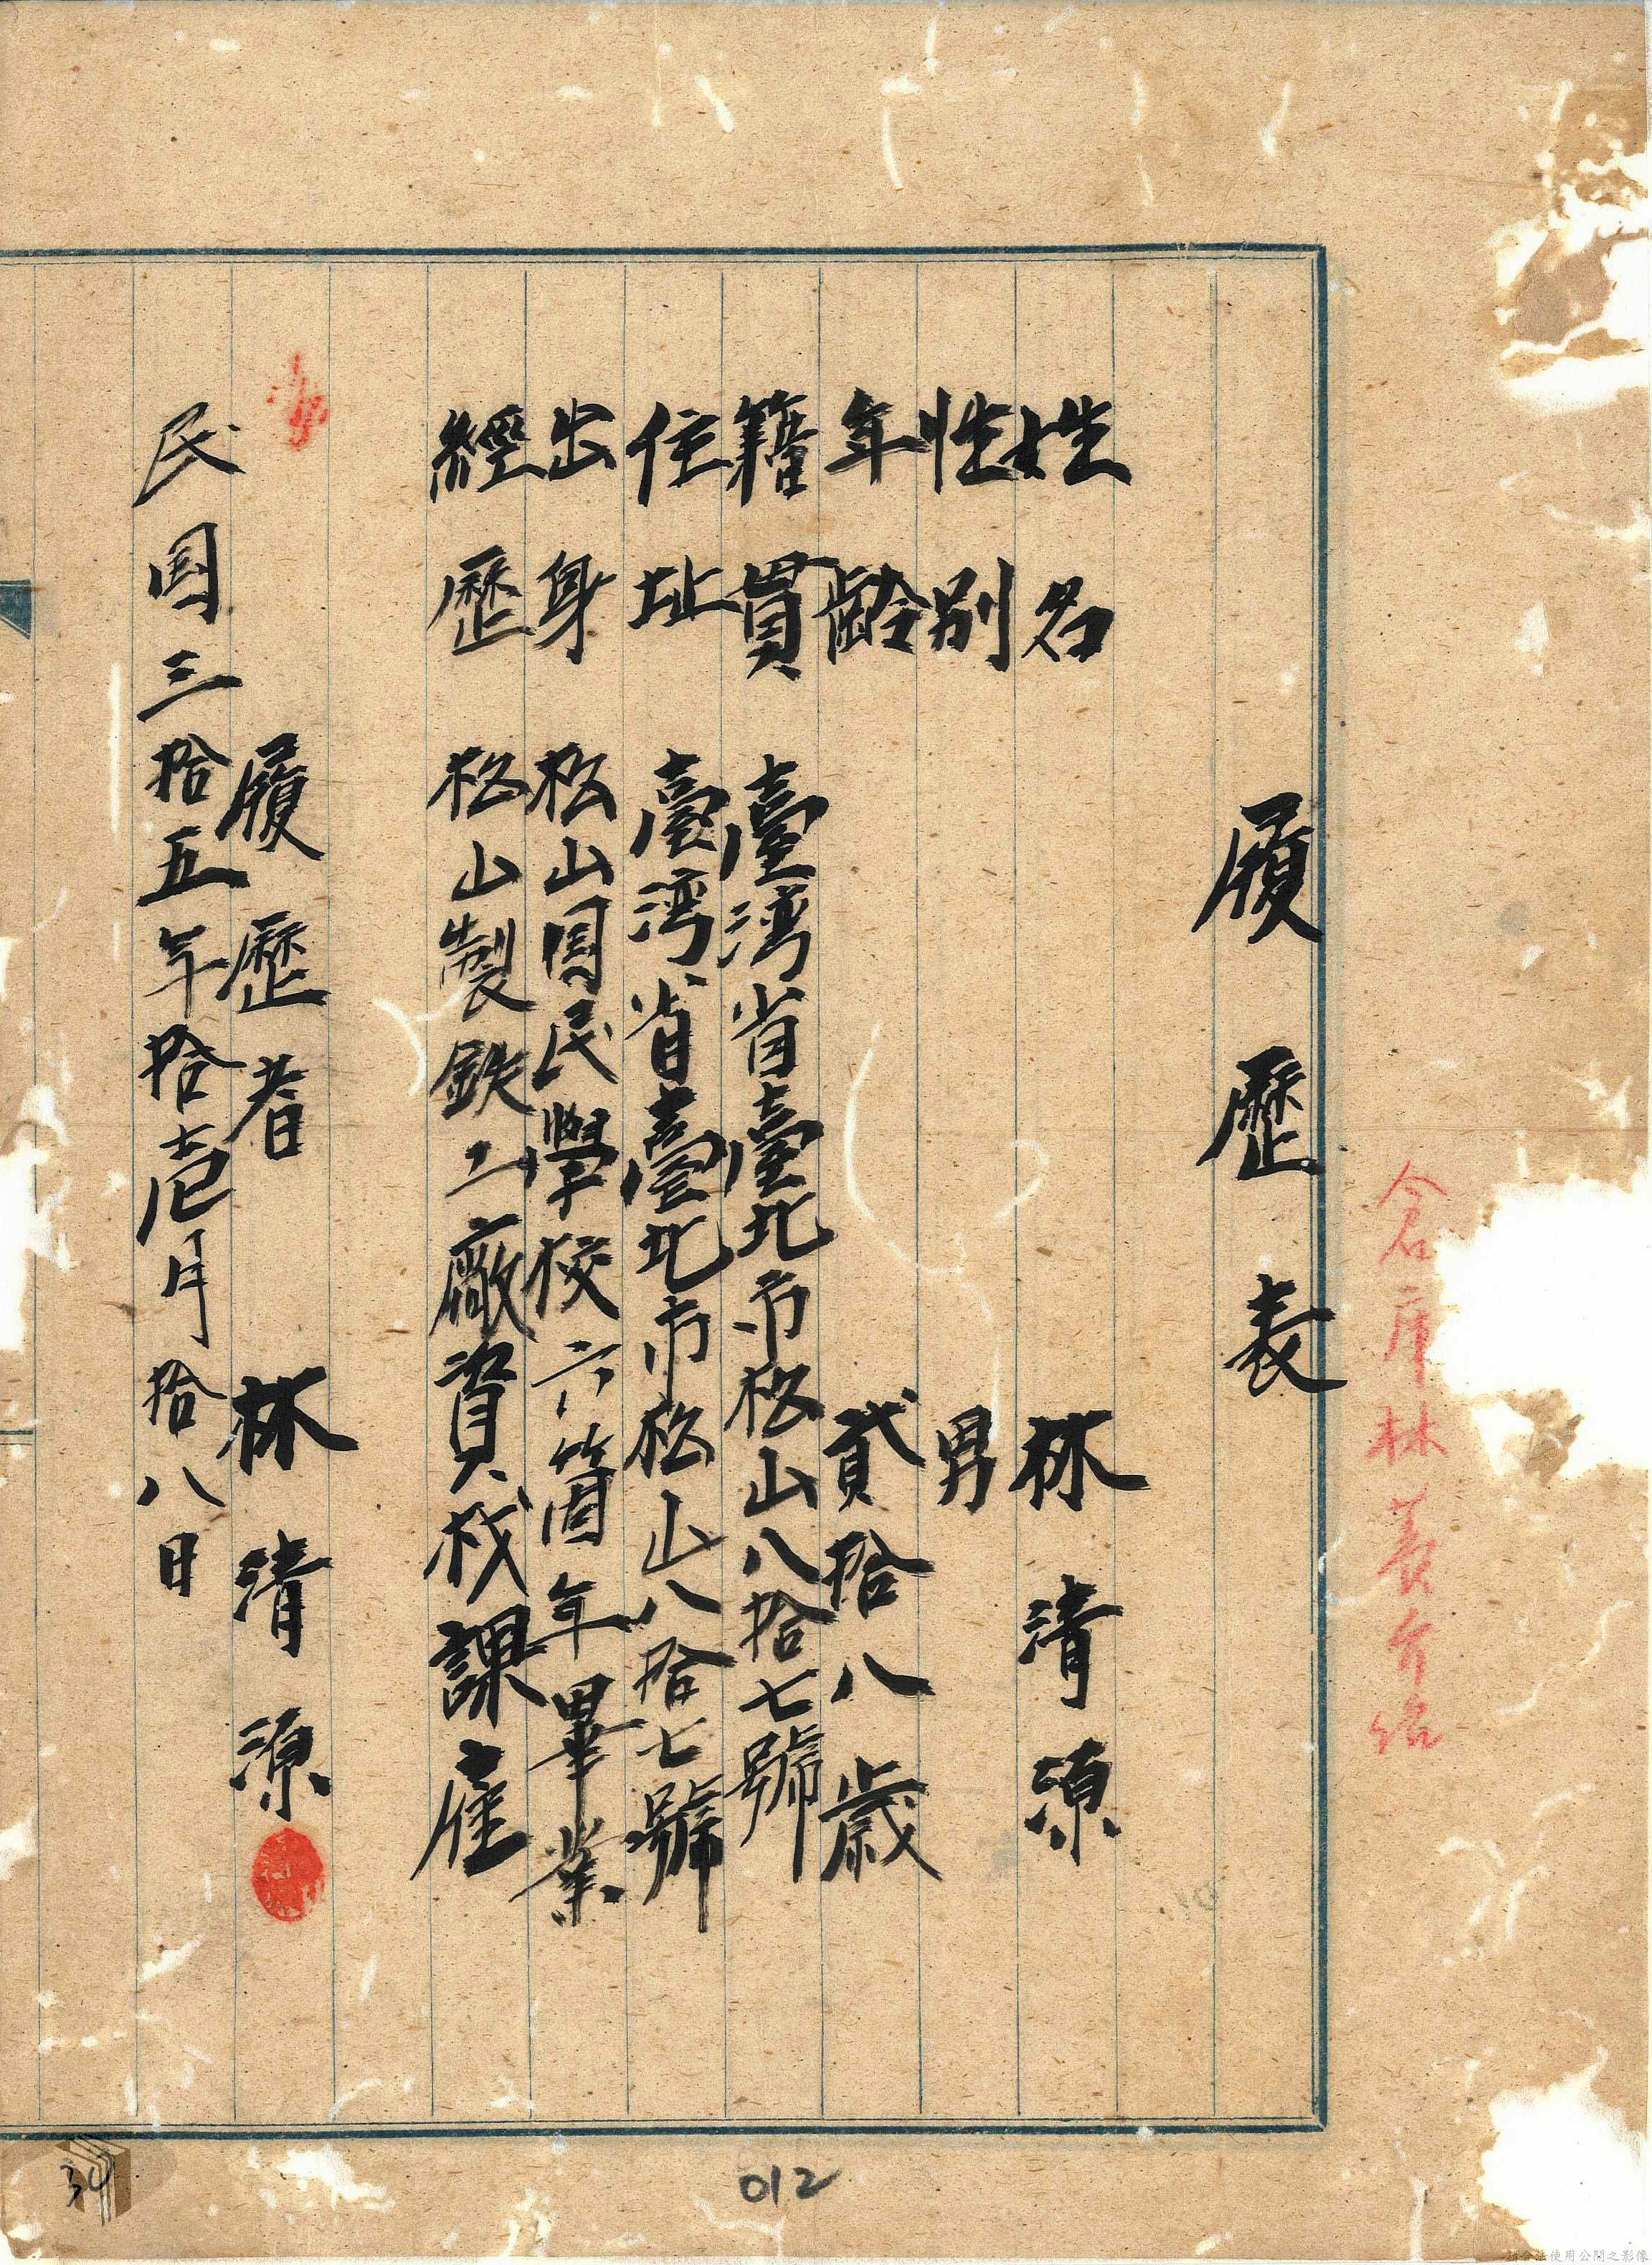 倉庫林善介紹
履歷表
姓名 林清源
性別 男
年齡 貳拾八歲
籍貫 臺湾省臺北市松山八拾七號
住址 臺湾省臺北市松山八拾七號
出身 松山国民學校六箇年畢業
經歷 松山製鉄工廠資材課雇
履歷者 林清源
民国三拾五年拾壱月拾八日
012
34